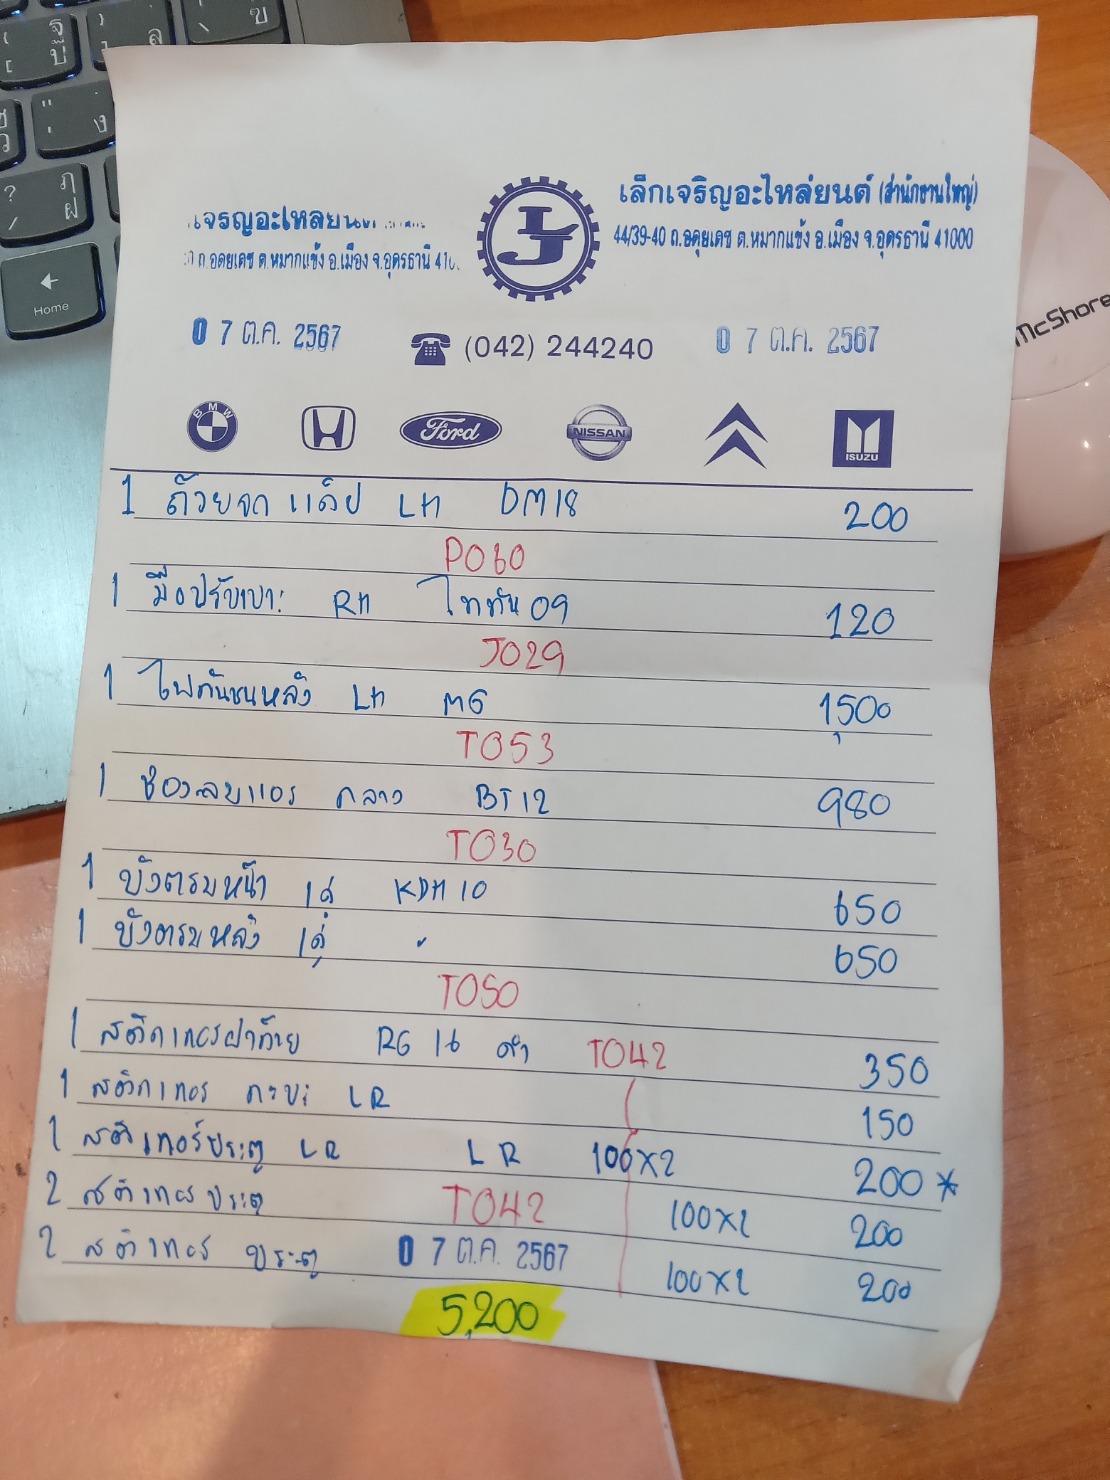 เล็กเจริญอะไหล่ยนต์ (สำนักงานใหญ่)
44/39-40 ถ.อดุยเดช ต.หมากแข้ง อ.เมือง จ.อุดรธานี 41000
เจรญอะไหลยนต
ถ.อดุยเดช ต.หมากแข้ง อ.เมือง จ.อุดรธานี
LJ
0 7 ต.ค. 2567
(042) 244240
0 7 ต.ค. 2567
BMW
Ford
NISSAN
ISUZU
1 ถ้วยจุก แค็ป LH DM18 200
P060
1 มือปรับเบาะ RH ไททัน 09 120
J029
1 ไฟกันชนหลัง LH MG 1,500
T053
1 ช่องลมแอร์ กลาง BT12 980
T030
1 บังตรมหน้า 1คู่ KDH10 650
1 บังตรมหลัง 1คู่ 650
T050
1 สติกเกอร์ฝาท้าย RG 16 ดำ T042 350
1 สติกเกอร์ กระบะ LR 150
1 สติเกอร์ประตู LR LR 100x2 200 *
2 สติเกอร์ ประตู T042 100x2 200
2 สติเกอร์ ประตู 0 7 ต.ค. 2567 100x2 200
5,200
McShore
Home